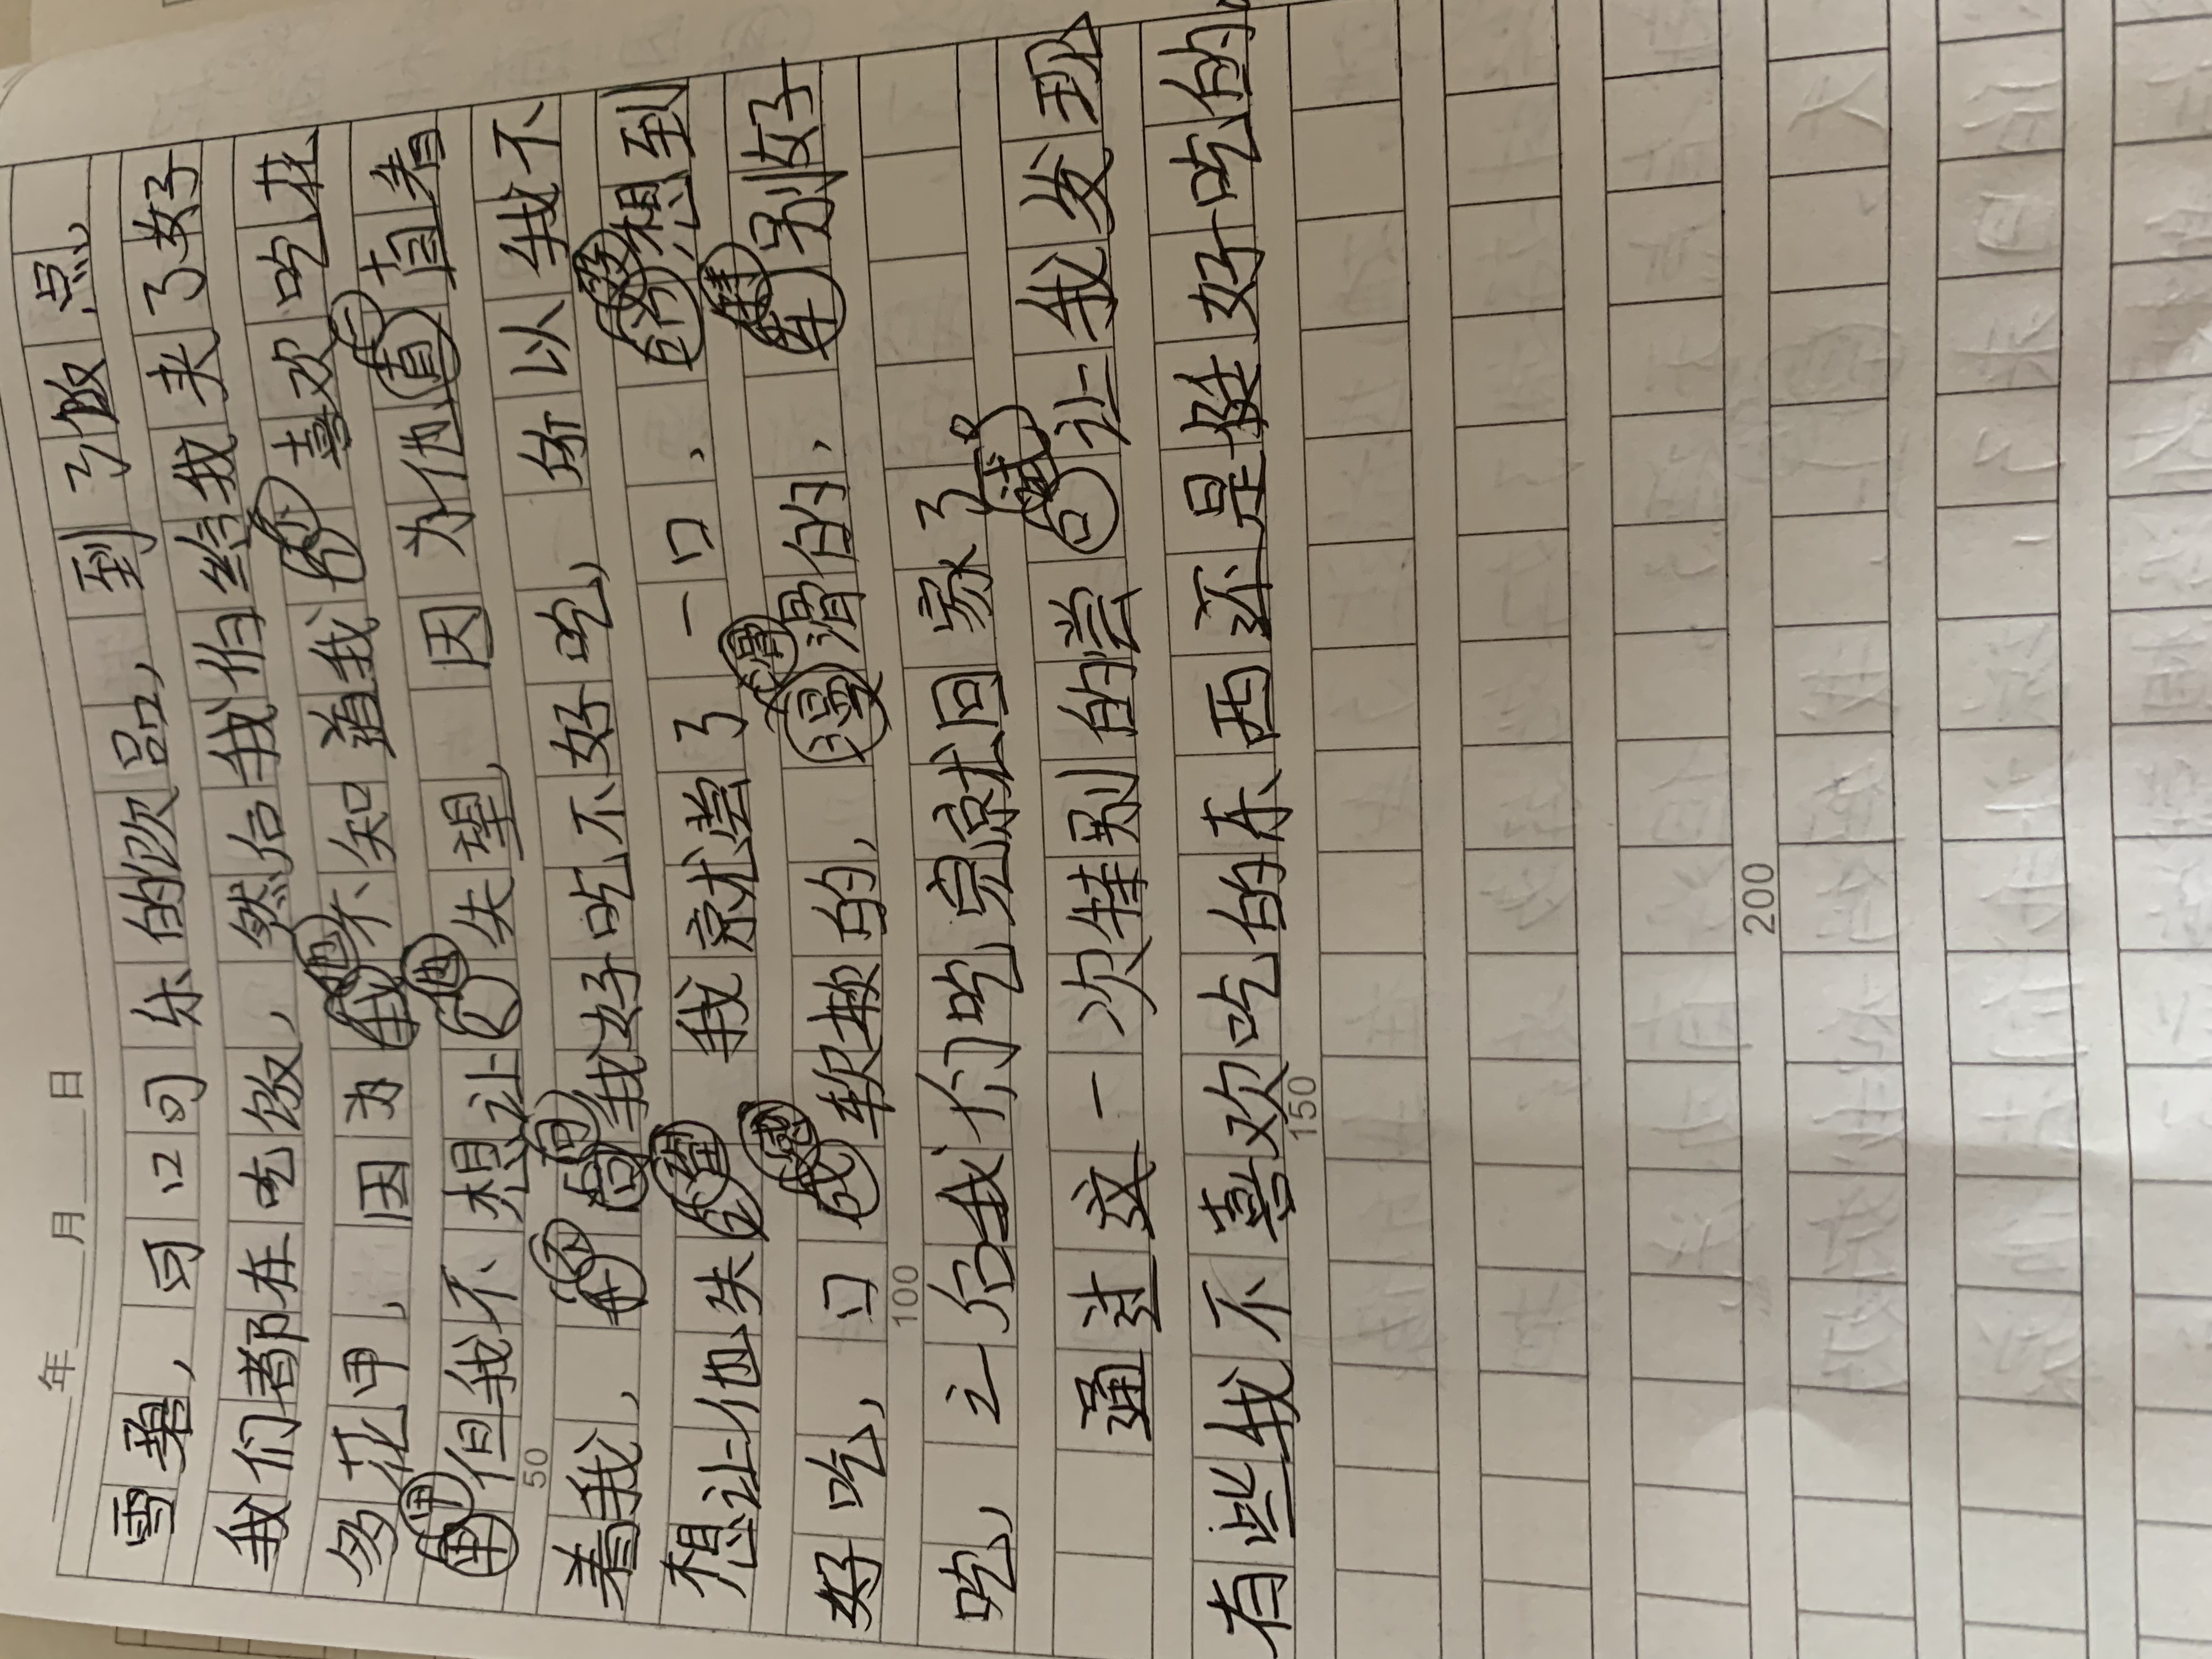 年 月 日
雪碧，可口可乐的饮品，到了饭点，
我们都在吃饭，然后我伯给我夹了好
多花甲，因为他不知道我不喜欢吃花
甲但我不想让他失望，因为他一直看
50
着我，问我好吃不好吃，所以我不
想让他失望我就尝了一口，没想到
好吃，口感软软的，滑滑的，特别好
100
吃，之后我们吃完就回家了。
通过这一次特别的尝试让我发现
有些我不喜欢吃的东西还是挺好吃的
150
200